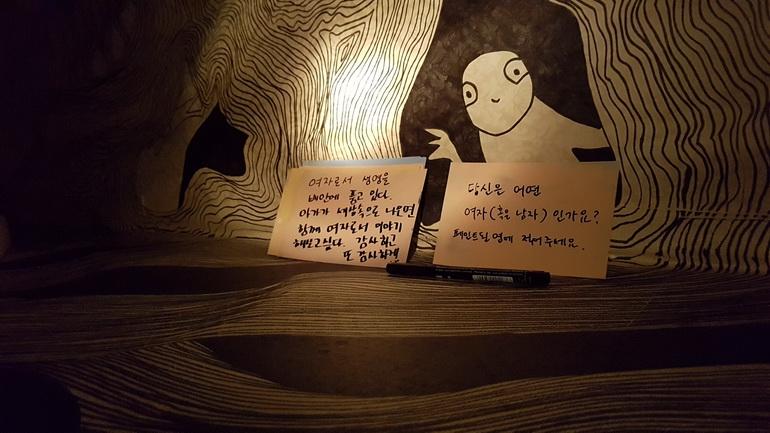 여자로서 생명을
배안에 품고 있다.
아가가 세상속으로 나오면
함께 여자로서 이야기
해보고싶다. 감사하고
또 감사하게
당신은 어떤
여자(혹은 남자)인가요?
페인트된 옆에 적어주세요.